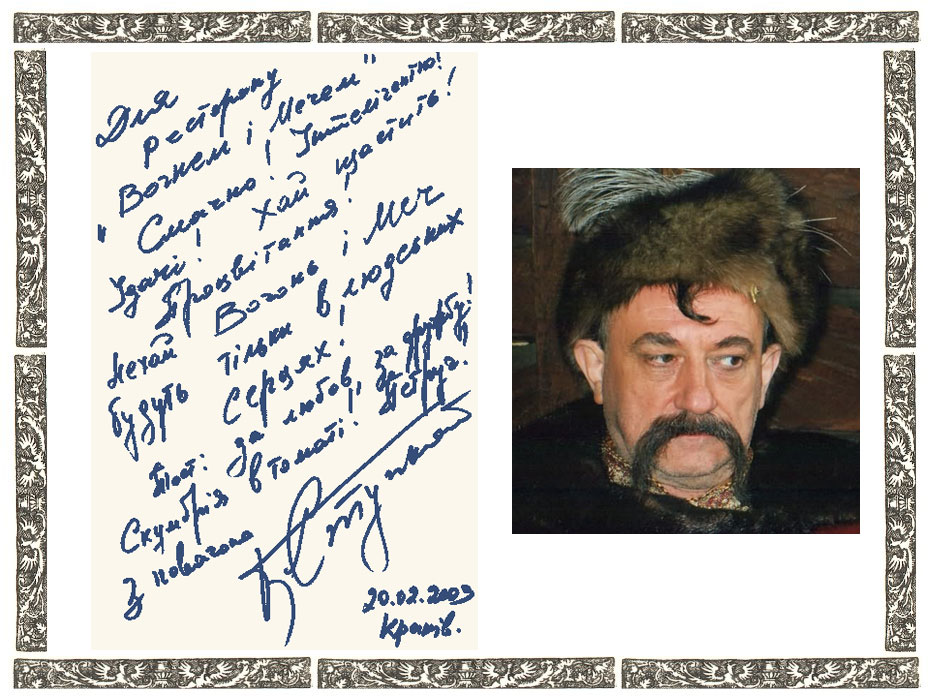 Для
ресторану
"Вогнем і Мечем"
Смачно! Інтелігентно!
Удачі! Хай щастить!
Процвітання!
Нехай Вогонь і Меч
будуть тільки в людських
серцях!
Тост: за любов, за дружбу!
Скумбрія в томаті!
З повагою
Б Ступка
20.02.2003